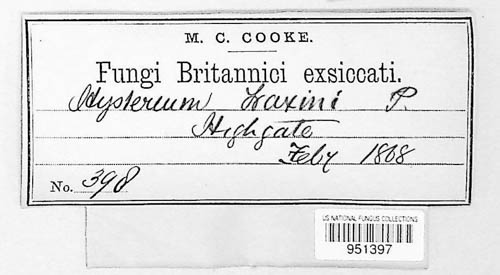 M. C. COOKE.
Fungi Britannici exsiccati.
Hysterium Fraxini P.
Highgate
Feby 1868
No. 398
US NATIONAL FUNGUS COLLECTIONS
951397